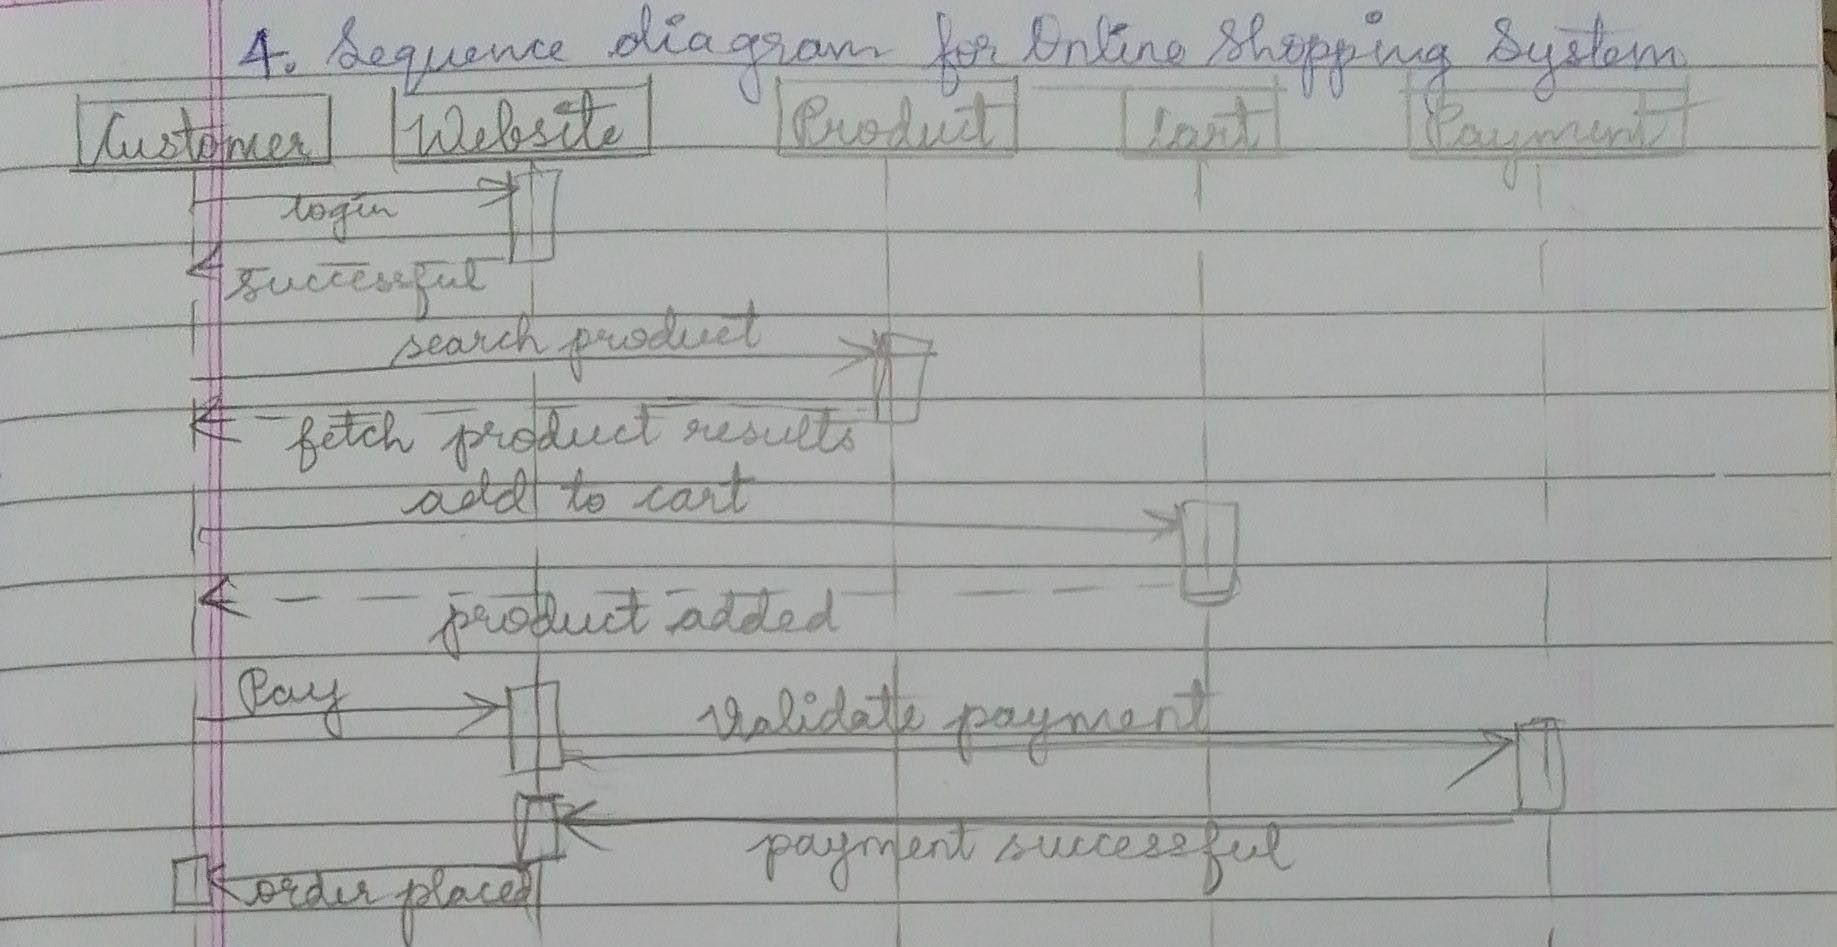 4. Sequence diagram for Online Shopping System
Customer Website Product Cart Payment
login
successful
search product
fetch product results
add to cart
product added
Pay
validate payment
payment successful
order placed